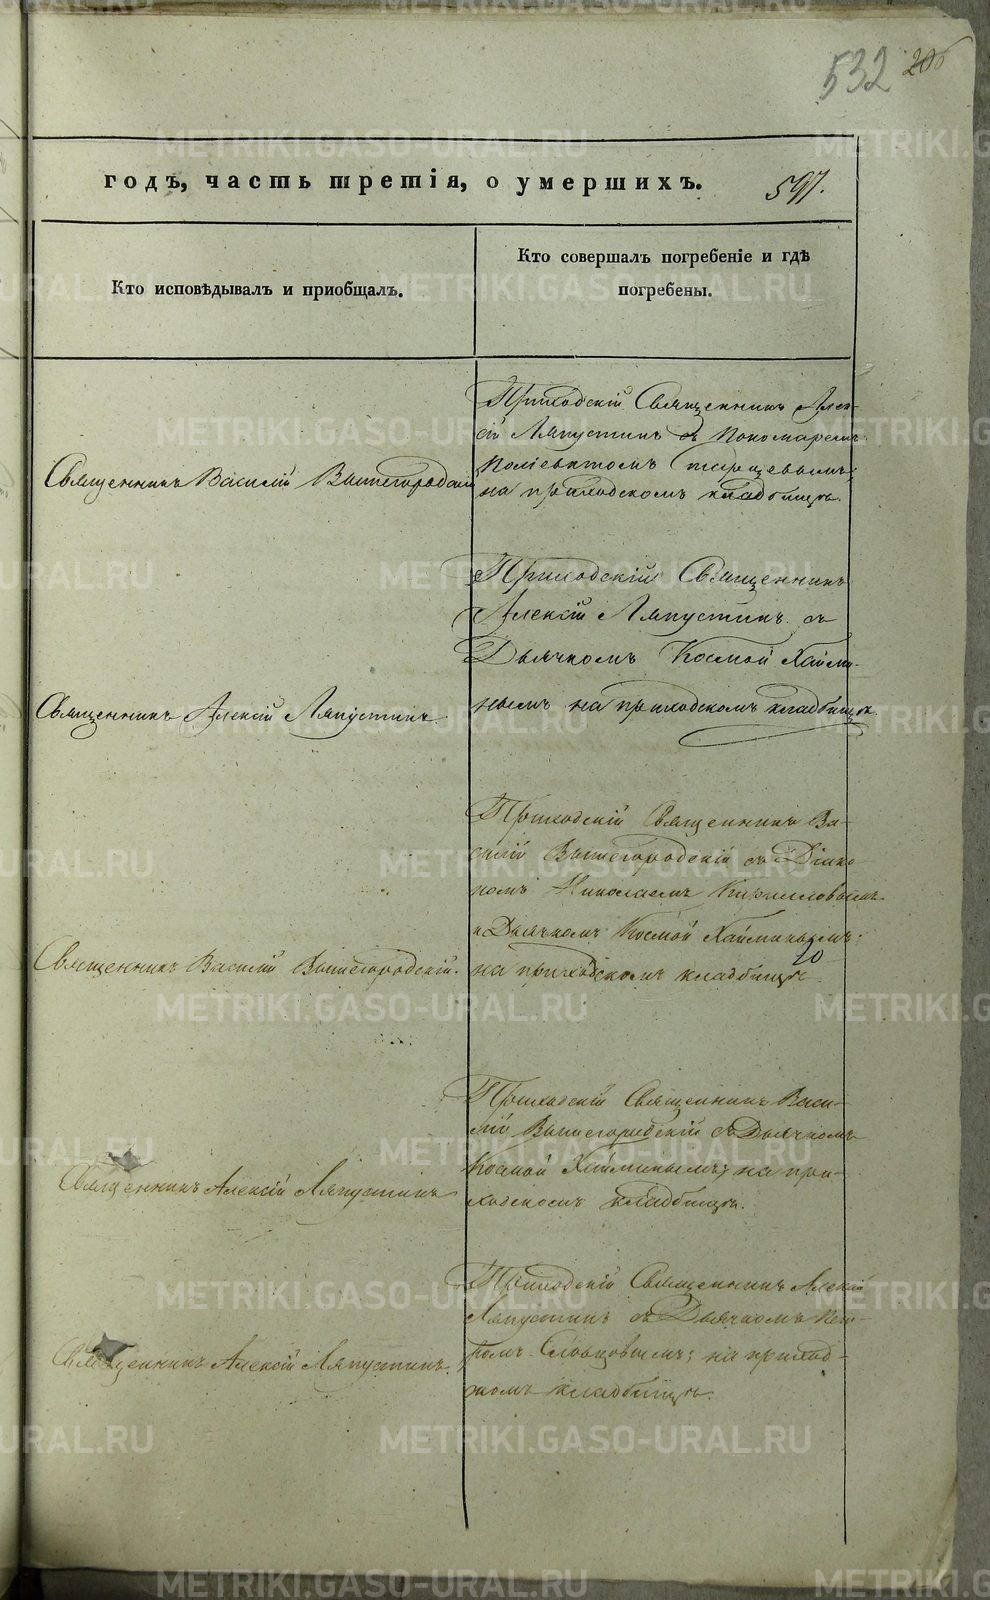 532 206
годъ, часть третія, о умершихъ. 597.
Кто исповѣдывалъ и пріобщалъ.
Кто совершалъ погребеніе и гдѣ
погребены.
Священникъ Василій Вышегородскій
Приходскій Священникъ Алек-
сій Ляпустинъ съ Пономаремъ
Поліевктомъ
на приходскомъ кладбищѣ.
Священникъ Алексій Ляпустинъ.
Приходскій Священникъ
Алексій Ляпустинъ съ
Дьячкомъ Космой Хайми-
нымъ на приходскомъ кладбищѣ.
Священникъ Василій Вышегородскій.
Приходскій Священникъ Ва-
силій Вышегородскій съ Діако-
номъ Николаемъ Кирилловымъ
и Дьячкомъ Космой Хайминымъ;
на приходскомъ кладбищѣ.
10
Священникъ Алексій Ляпустинъ
Приходскій Священникъ Васи-
лій Вышегородскій съ Дьячкомъ
Космой Хайминымъ; на при-
ходскомъ кладбищѣ.
Священникъ Алексій Ляпустинъ.
Приходскій Священникъ Алексій
Ляпустинъ съ Дьячкомъ Пет-
ромъ Словцовымъ; на приход-
скомъ кладбищѣ.
METRIKI.GASO-URAL.RU